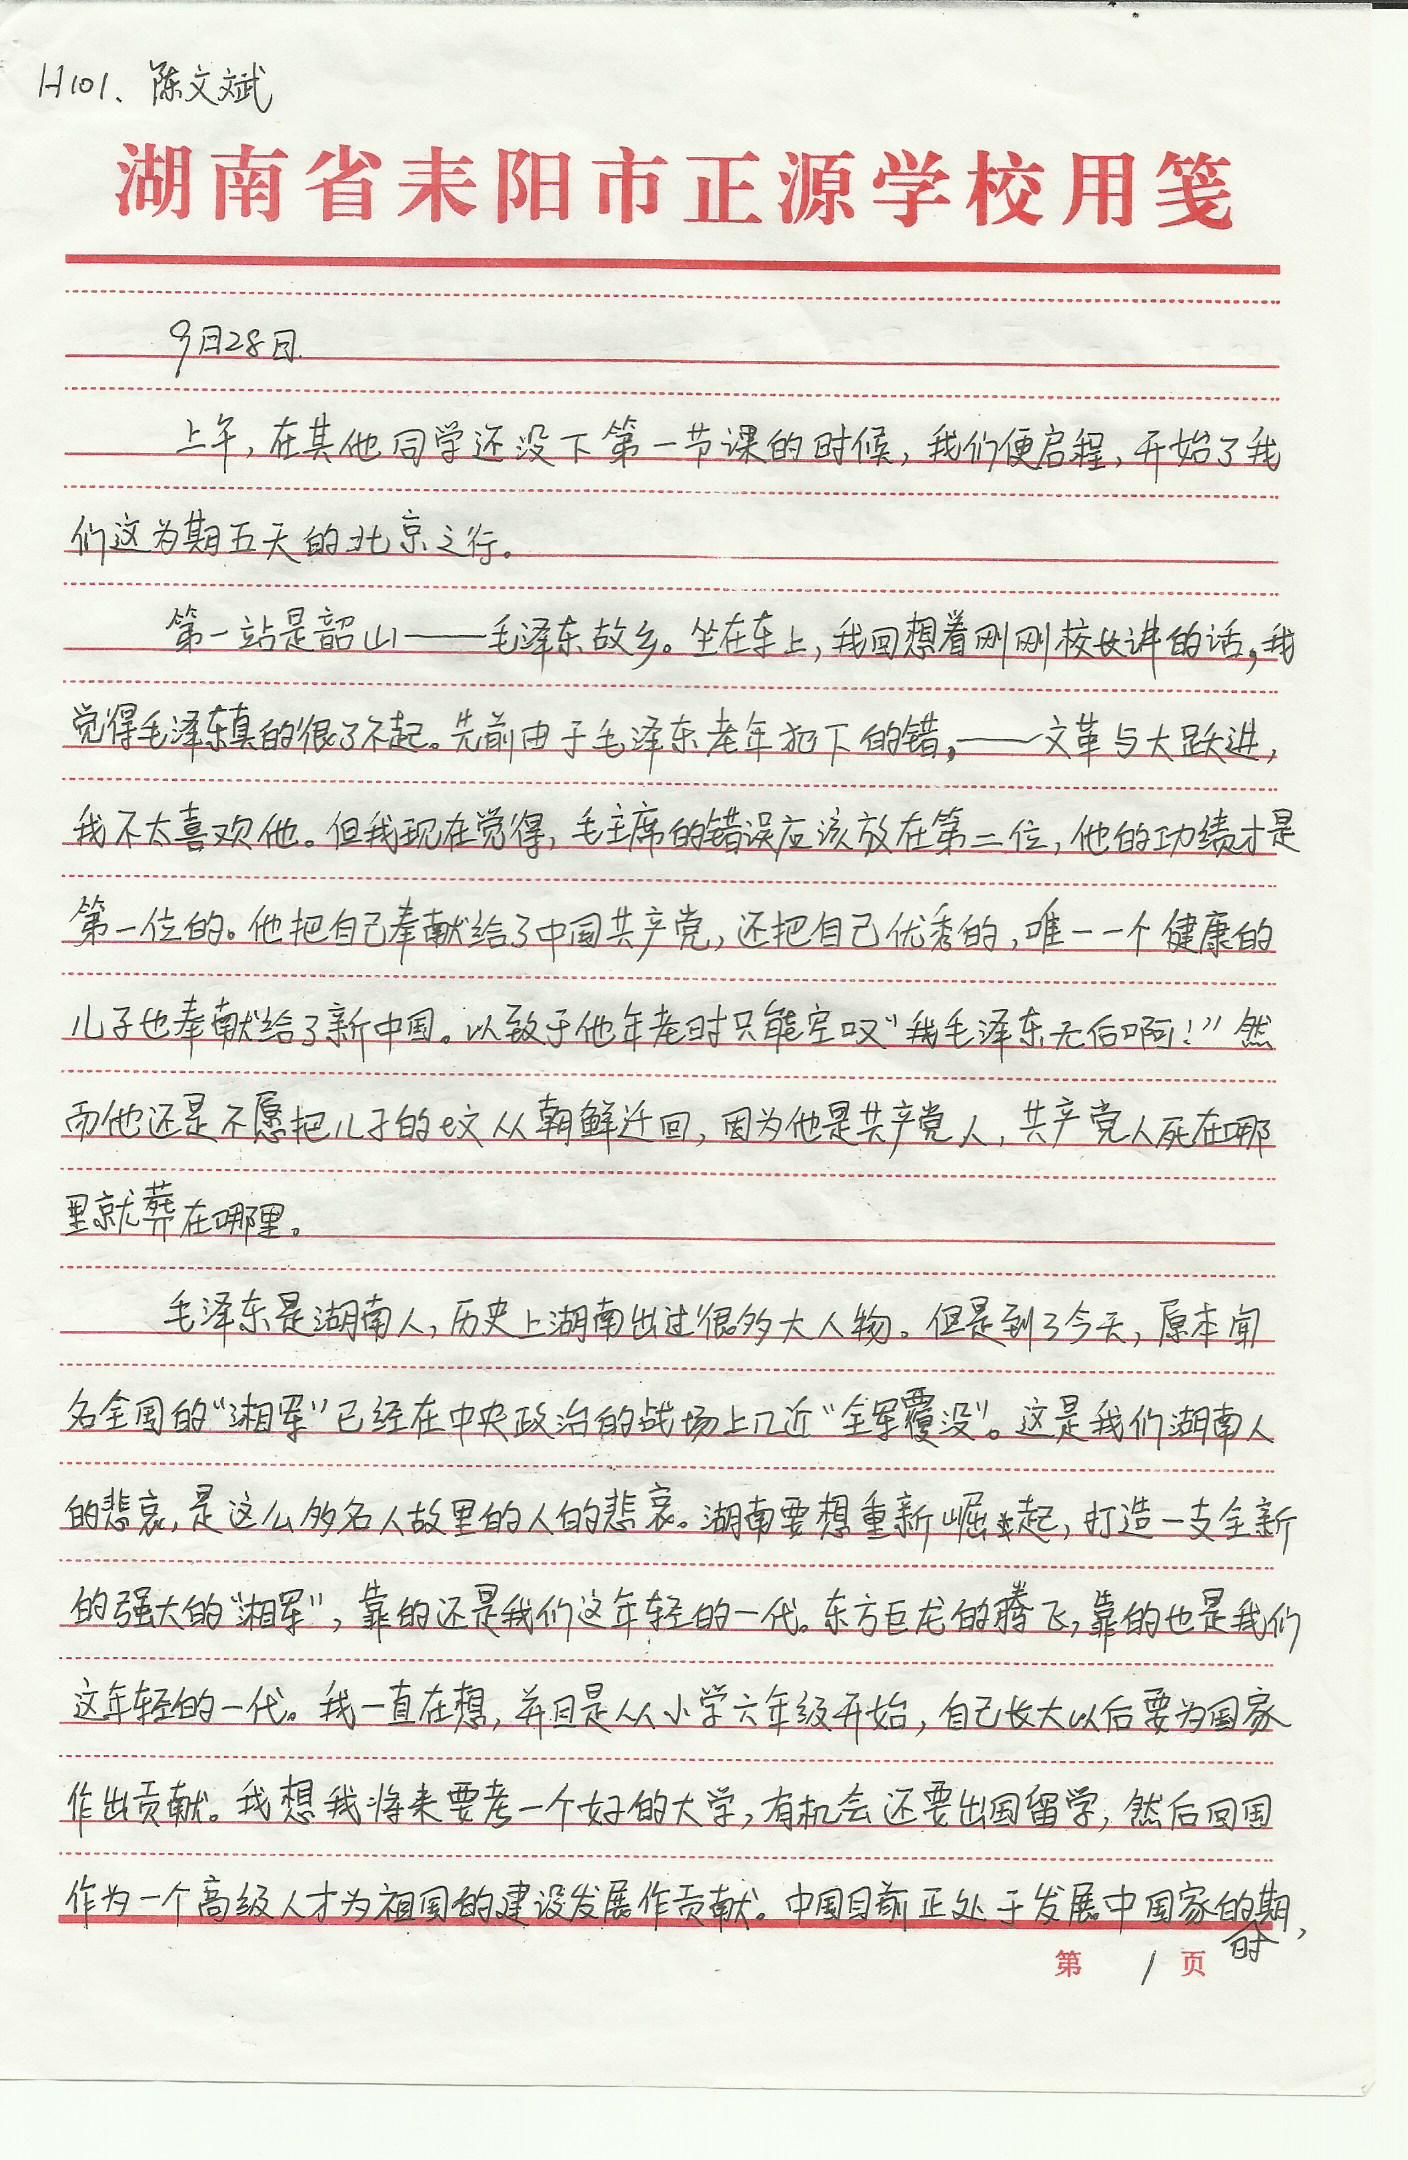 H101、陈文斌
湖南省耒阳市正源学校用笺
9月28日.
上午，在其他同学还没下第一节课的时候，我们便启程，开始了我
们这为期五天的北京之行。
第一站是韶山——毛泽东故乡。坐在车上，我回想着刚刚校长讲的话，我
觉得毛泽东真的很了不起。先前由于毛泽东老年犯下的错，——文革与大跃进，
我不太喜欢他。但我现在觉得，毛主席的错误应该放在第二位，他的功绩才是
第一位的。他把自己奉献给了中国共产党，还把自己优秀的，唯一一个健康的
儿子也奉献给了新中国。以致于他年老时只能空叹“我毛泽东无后啊！”然
而他还是不愿把儿子的坟从朝鲜迁回，因为他是共产党人，共产党人死在哪
里就葬在哪里。
毛泽东是湖南人，历史上湖南出过很多大人物。但是到了今天，原本闻
名全国的“湘军”已经在中央政治的战场上几近“全军覆没”。这是我们湖南人
的悲哀，是这么多名人故里的人的悲哀。湖南要想重新崛起，打造一支全新
的强大的“湘军”，靠的还是我们这年轻的一代。东方巨龙的腾飞，靠的也是我们
这年轻的一代。我一直在想，并且是从小学六年级开始，自己长大以后要为国家
作出贡献。我想我将来要考一个好的大学，有机会还要出国留学，然后回国
作为一个高级人才为祖国的建设发展作贡献。中国目前正处于发展中国家的时期，
第 1 页